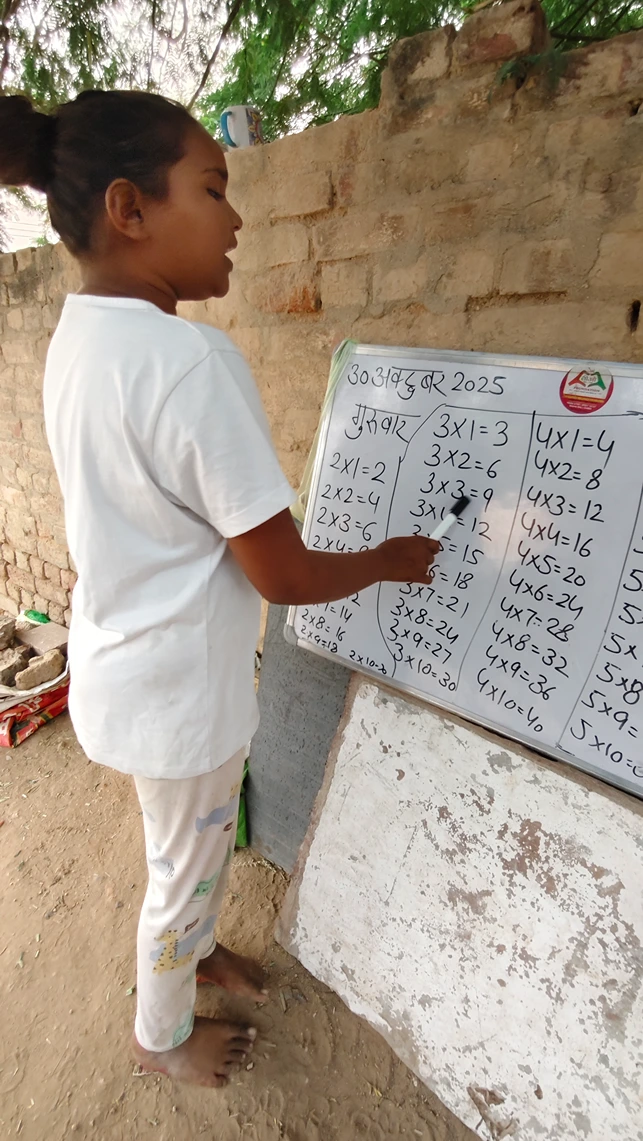 30 अक्टूबर 2025
गुरुवार
2x1=2
2x2=4
2x3=6
2x4=8
2x8=16
2x9=18
2x10=20
3x1=3
3x2=6
3x3=9
=12
=15
6=18
3x7=21
3x8=24
3x9=27
3x10=30
4x1=4
4x2=8
4x3=12
4x4=16
4x5=20
4x6=24
4x7=28
4x8=32
4x9=36
4x10=40
5x8
5x9=
5x10=